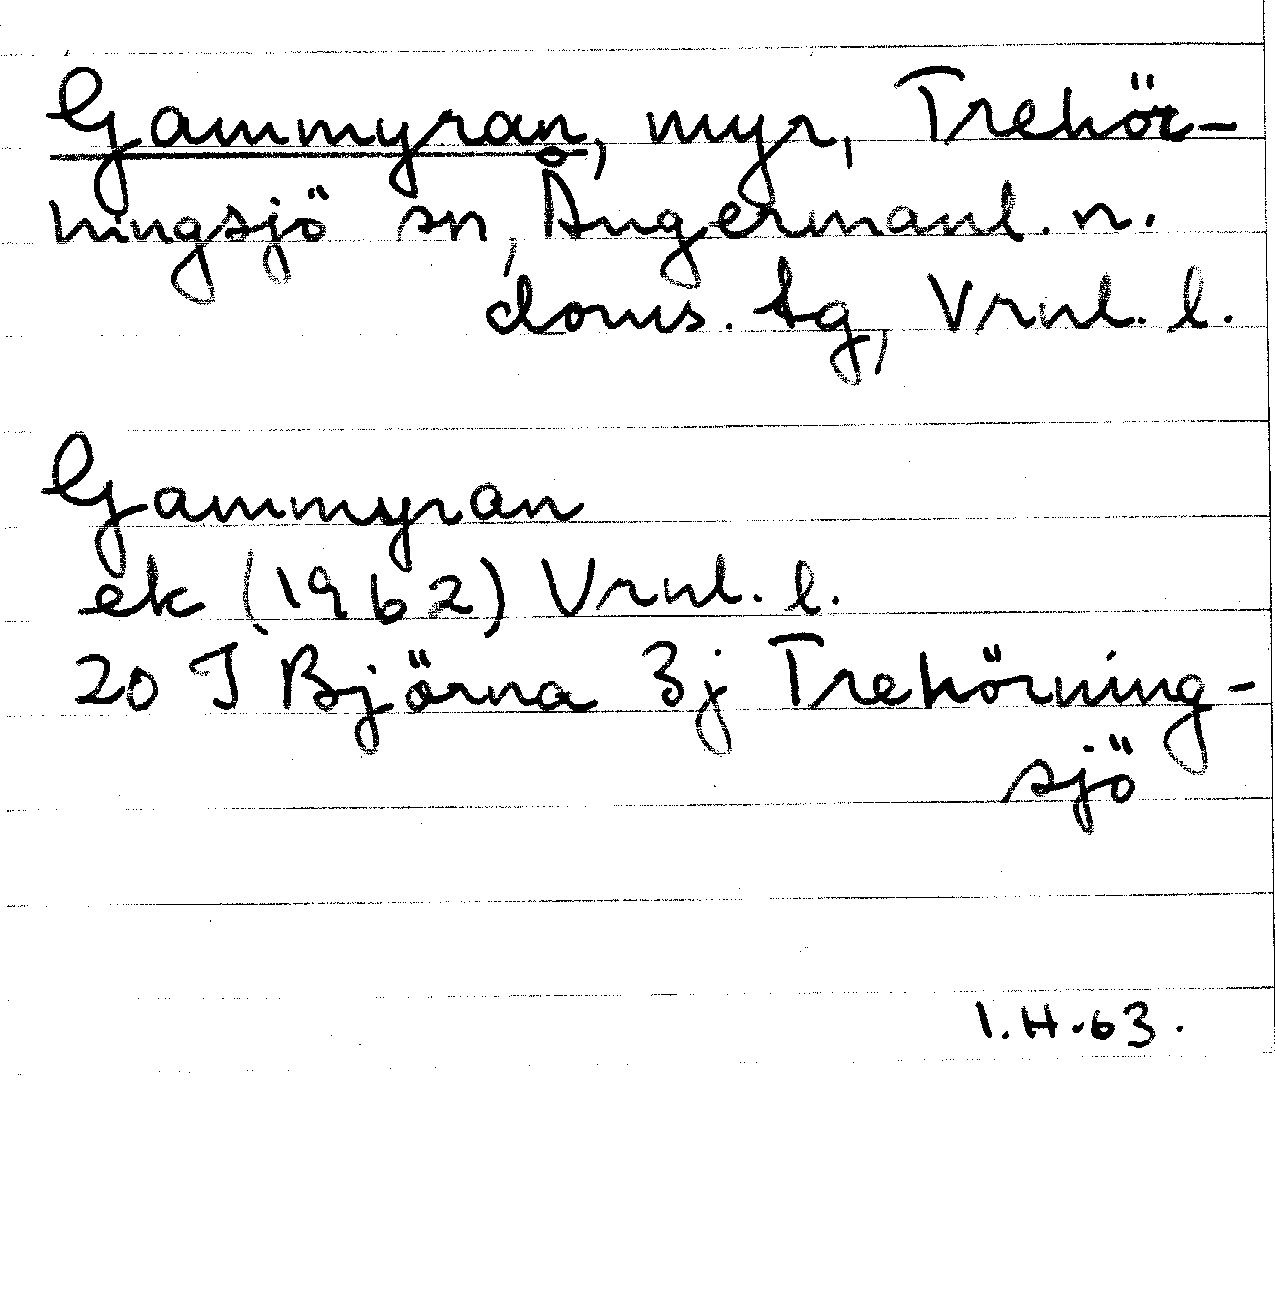 Gammyran, myr, Trehör-
ningsjö sn, Ångermanl. n.
doms. tg, Vrnl. l.
Gammyran
ek (1962) Vrnl. l.
20 J Björna 3j Trehörning-
sjö
I.H.63.